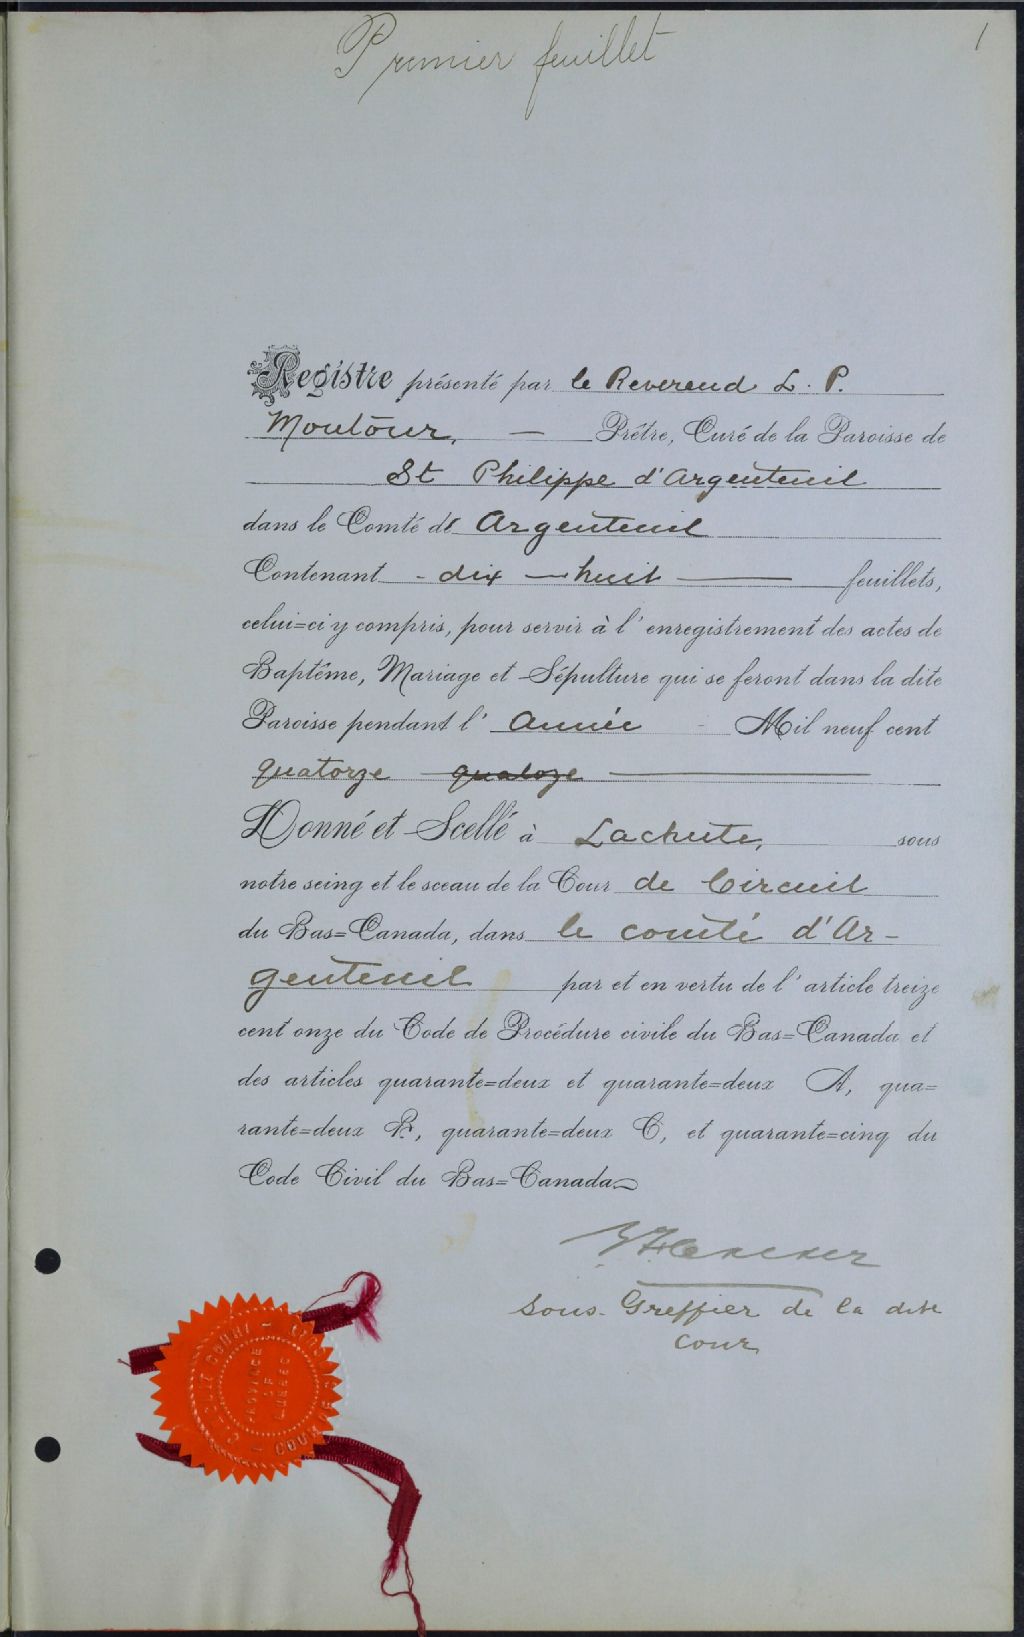 Premier feuillet
1
Registre présenté par le Reverend L. P.
Moutour, — Prêtre, Curé de la Paroisse de
St Philippe d'Argenteuil
dans le Comté de Argenteuil
Contenant - dix - huit — feuillets,
celui=ci y compris, pour servir à l'enregistrement des actes de
Baptême, Mariage et Sépulture qui se feront dans la dite
Paroisse pendant l'Année - Mil neuf cent
quatorze quatoze
Donné et Scellé à Lachute, sous
notre seing et le sceau de la Cour de Circuit
du Bas=Canada, dans le comté d'Ar-
genteuil par et en vertu de l'article treize
cent onze du Code de Procédure civile du Bas=Canada et
des articles quarante=deux et quarante=deux A, qua=
rante=deux B, quarante=deux C, et quarante=cinq du
Code Civil du Bas=Canada
Sous-Greffier de la dite
Cour
CIRCUIT COURT
PROVINCE
OF
QUEBEC